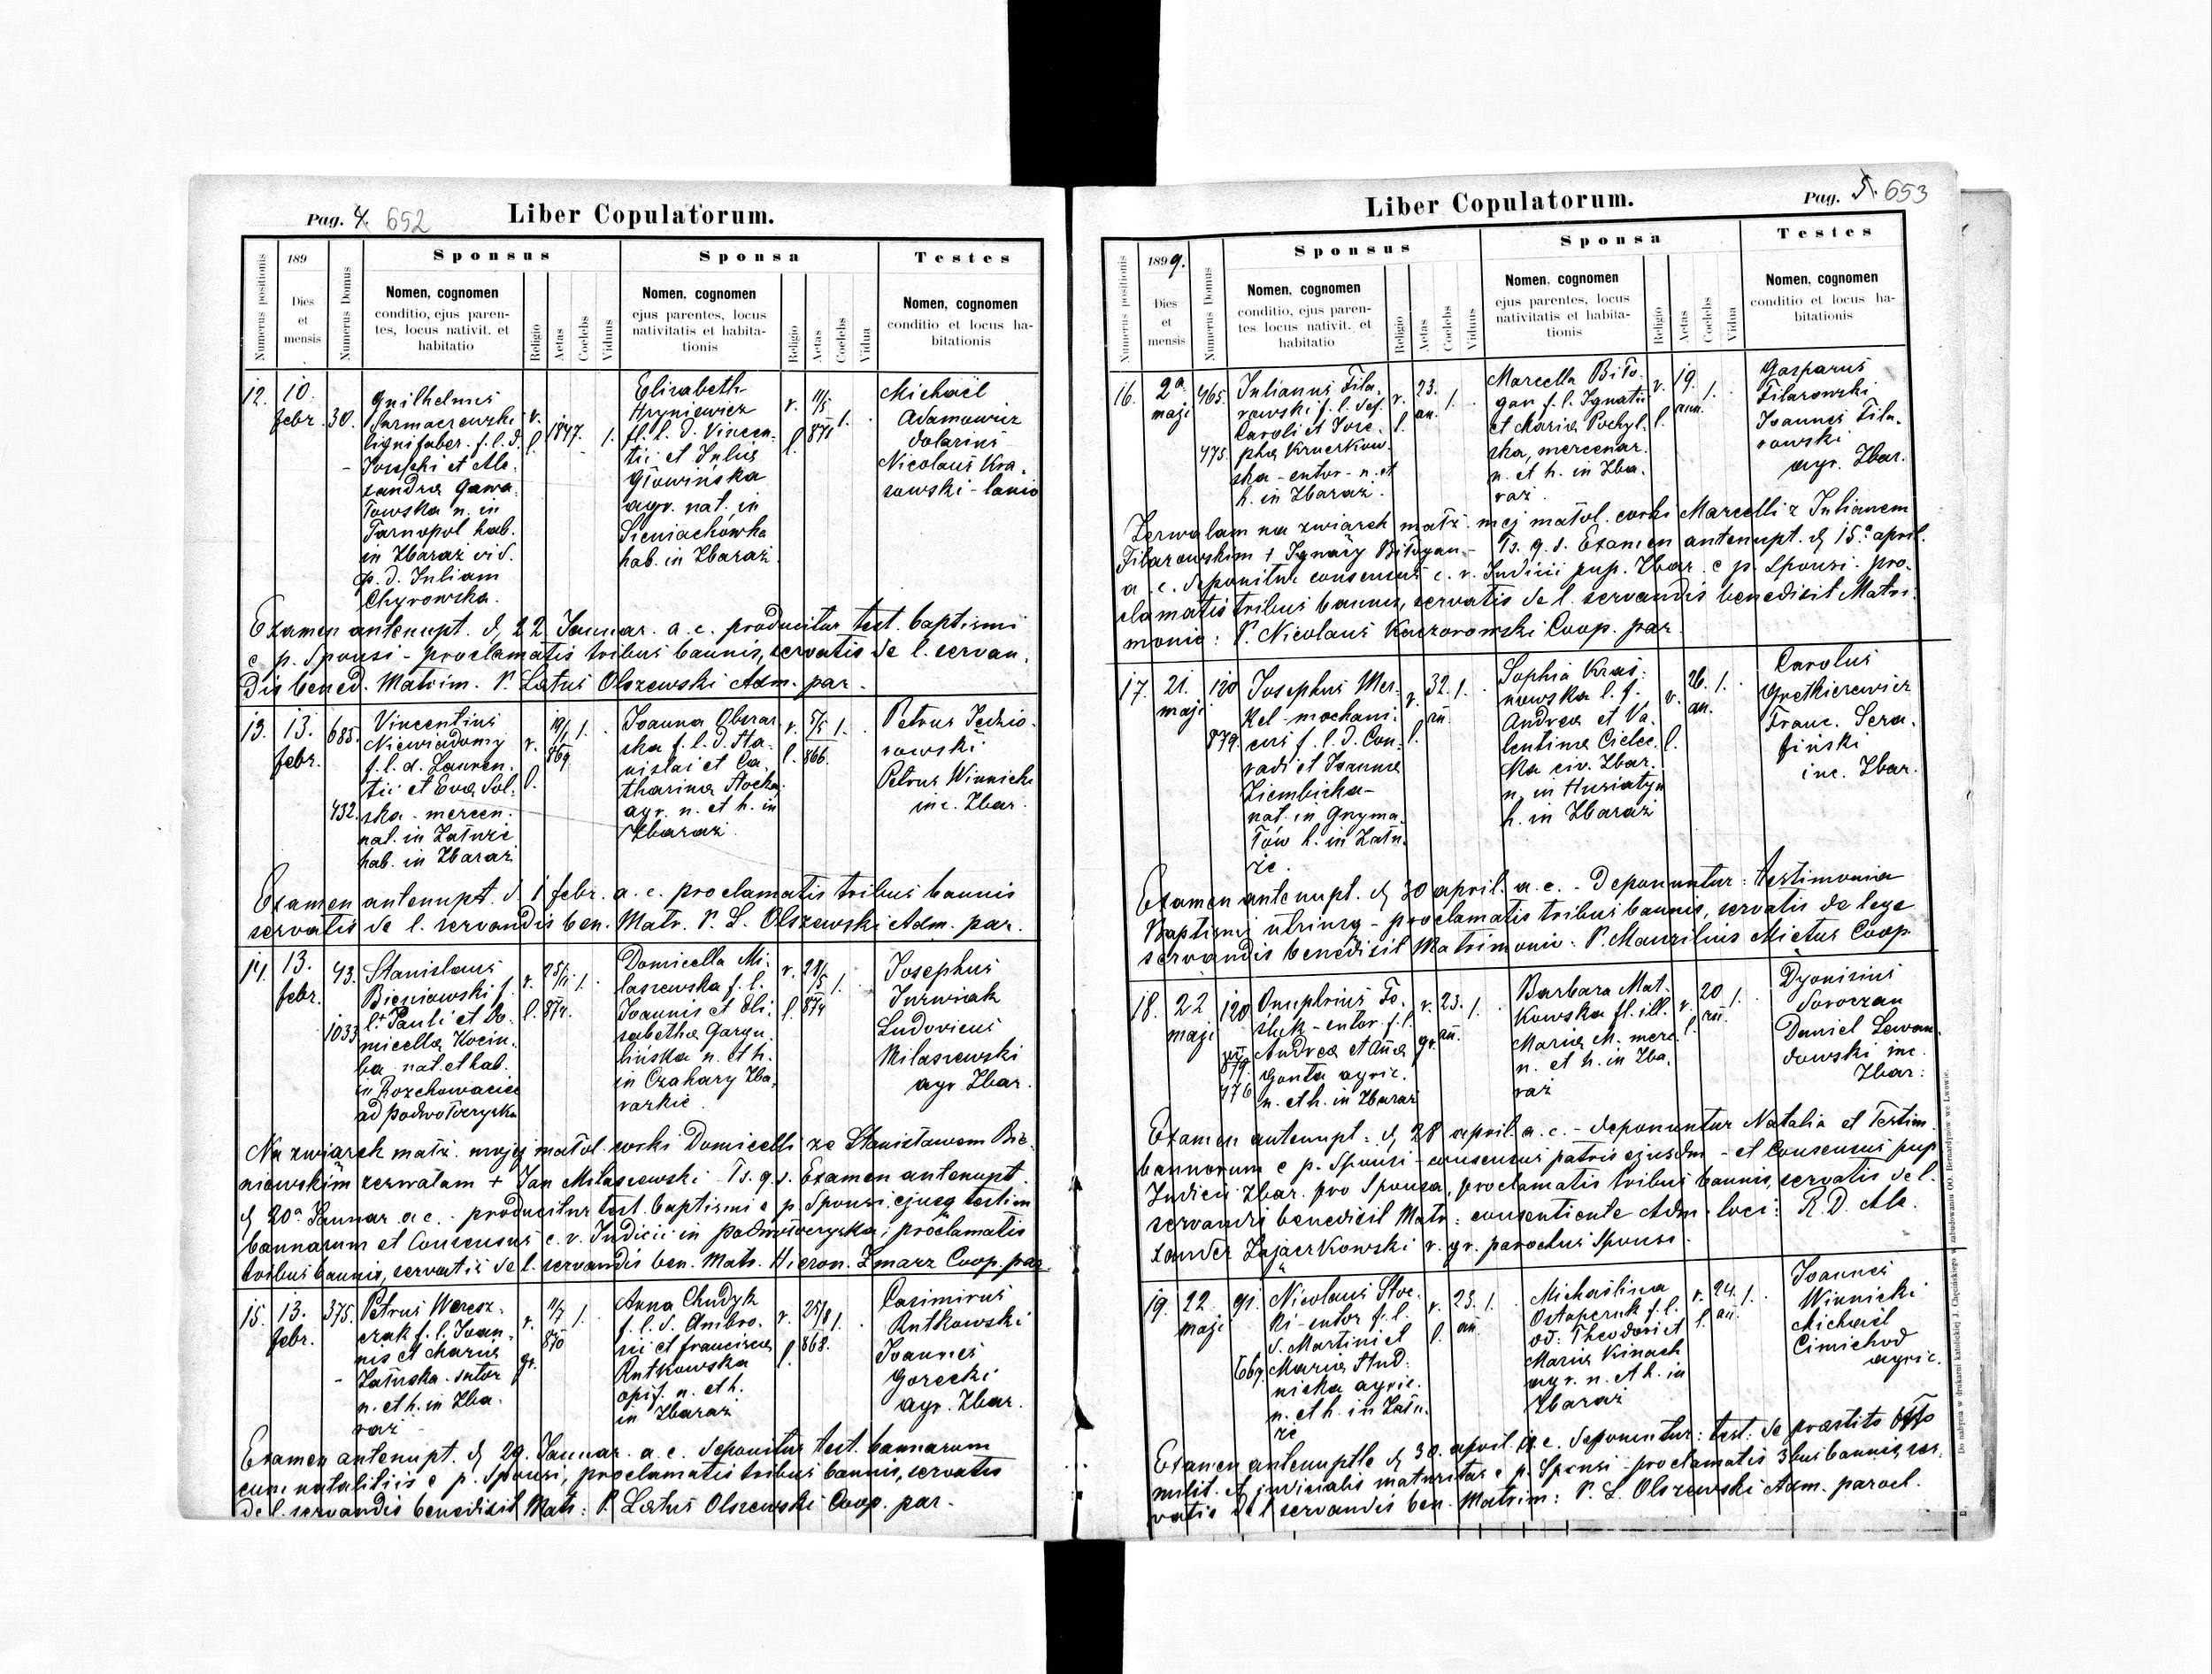 Pag. 4. 652
Liber Copulatorum.
Numerus positionis
189
Dies
et
mensis
Numerus Domus
Sponsus
Nomen, cognomen
conditio, ejus paren-
tes, locus nativit. et
habitatio
Religio
Aetas
Coelebs
Viduus
Sponsa
Nomen, cognomen
ejus parentes, locus
nativitatis et habita-
tionis
Religio
Aetas
Coelebs
Vidua
Testes
Nomen, cognomen
conditio et locus ha-
bitationis
12.
10.
febr.
30.
Guilhelmus
Surmaczewski
lignifaber. f. l. d.
Josephi et Ale-
xandra Gawa-
łowska n. in
Tarnopol hab.
in Zbaraż vid.
p. d. Juliam
Chyrowska.
r.
l.
1847.
1.
Elisabeth
Hryniewicz
fl. l. d. Vincen-
tii et Julia
Głowińska
agr. nat. in
Sieniachówka
hab. in Zbaraż
r.
l.
11/5
871
1.
Michaël
Adamowicz
dolarius
Nicolaus Kra-
sowski - lanio
Examen antenupt. d. 22 Januar. a. c. producitur test. baptismi
e p. Sponsi - proclamatis tribus bannis, servatis de l. servan-
dis bened. Matrim. P. Lætus Olszewski Adm. par.
13.
13.
febr.
685.
432.
Vincentius
Niewiadomy
f. l. d. Lauren-
tii et Eva Sol-
ska - mercen.
nat. in Załuże
hab. in Zbaraż
r.
l.
19/1
869
1.
Joanna Obszar-
ska f. l. d. Sta-
nislai et Ca-
tharina Stocka
agr. n. et h. in
Zbaraż.
r.
l.
5/5
866.
1.
Petrus Jedzio-
rowski
Petrus Winnicki
inc. Zbar.
Examen antenupt. d. 1 febr. a. c. proclamatis tribus bannis
servatis de l. servandis ben. Matr. P. L. Olszewski Adm. par.
14.
13.
febr.
43.
1033
Stanislaus
Bieniowski f.
l. † Pauli et Do-
micella Kocin-
ba nat. et hab.
in Rozchowaciec
ad podwołoczyska
r.
l.
874.
1.
Domicella Mi-
laszewska f. l.
Joannis et Eli-
sabetha Garyn-
lińska n. et h.
in Czahary Zba-
razkie.
r.
l.
28/5
874
1.
Josephus
Jurwiak
Ludovicus
Milaszewski
agr. Zbar.
Na związek małż. mojej małol. córki Domicelli ze Stanisławem Bie-
niowskim zezwalam + Jan Milaszewski Ts. q. s. Examen antenupt.
d. 20ª Januar a. c. - producitur test. baptismi e p. Sponsi ejusq testim
bannorum et Consensus c. r. Judicii in podwołoczyska; proclamatis
tribus bannis, servatis de l. servandis ben. Matr. Hieron. Zmarz Coop. par
15.
13.
febr.
375.
Petrus Weresz-
czak f. l. Joan-
nis et Maria
Załuska - sutor
n. et h. in Zba-
raż
r.
gr.
11/7
870
1.
Anna Chudyk
f. l. d. Ambro-
sii et francisca
Rutkowska
opif. n. et h.
in Zbaraż
r.
l.
25/8
868.
1.
Casimirus
Rutkowski
Joannes
Gorecki
agr. Zbar.
Examen antenupt. d. 29. Januar. a. c. deponitur test. bannorum
cum natalitiis e p. Sponsi, proclamatis tribus bannis, servatis
de l. servandis benedixit Matr: P. Lætus Olszewski Coop. par.
Liber Copulatorum.
Pag. 5. 653
Numerus positionis
1899.
Dies
et
mensis
Numerus Domus
Sponsus
Nomen, cognomen
conditio, ejus paren-
tes locus nativit. et
habitatio
Religio
Aetas
Coelebs
Viduus
Sponsa
Nomen, cognomen
ejus parentes, locus
nativitatis et habita-
tionis
Religio
Aetas
Coelebs
Vidua
Testes
Nomen, cognomen
conditio et locus ha-
bitationis
16.
2ª
maji
465.
475.
Julianus Fila-
rowski f. l. def.
Caroli et Jose-
pha Kruczkow-
ska - sutor - n. et
h. in Zbaraż.
r.
l.
23.
an.
1.
Marcella Biło-
gan f. l. Ignatii
et Maria Pochyl-
ska, mercenar.
n. et h. in Zba-
raż.
r.
l.
19.
ann.
1.
Gasparus
Filarowski
Joannes Fila-
rowski
agr. Zbar.
Zezwalam na związek małż. mej małol. corki Marcelli z Julianem
Filarowskim + Ignacy Biłogan - Ts. q. s. Examen antenupt. d. 15ª april.
a. c. deponitur consensus c. r. Judicii pup. Zbar. e p. Sponsi. pro-
clamatis tribus bannis, servatis de l. servandis benedixit Matri-
monio: P. Nicolaus Kaczorowski Coop. par.
17.
21.
maji
120
879.
Josephus Mer-
kel - mechani-
cus f. l. d. Con-
radi et Joanna
Ziembicka -
nat. in Gryma-
łów h. in Zału-
że.
r.
l.
32.
an.
1.
Sophia Kras-
nowska l. f.
Andrea et Va-
lentina Cielec-
ka civ. Zbar.
n. in Husiatyn
h. in Zbaraż
r.
l.
26.
an.
1.
Carolus
Gretkierewicz
Franc. Sera-
fiński
inc. Zbar.
Examen antenupt. d. 30 april. a. c. - Deponuntur: testimonia
Baptismi utriusq - proclamatis tribus bannis, servatis de lege
servandis benedixit Matrimonio: P. Maurilius Mictus Coop.
18.
22
maji
120
879.
776
Onuphrius To-
sluk - sutor f. l.
Andrea et Anna
Gonta agric.
n. et h. in Zbaraż
r.
gr.
23.
an.
1.
Barbara Mat-
kowska fl. ill.
Maria M. merc.
n. et h. in Zba-
raż
r.
l.
20
an.
1.
Dyonisius
Soroczan
Daniel Lewan-
dowski inc.
Zbar:
Examen antenupt. d. 28 april. a. c. - deponuntur Natalia et Testim.
bannorum e p. Sponsi - consensus patris ejusdm - et Consensus pup.
Judicii Zbar. pro Sponsa, proclamatis tribus bannis, servatis de l.
servandis benedixit Matr: consentiente Adm. loci: R. D. Ale-
xander Zajączkowski r. gr. parochus Sponsi.
19.
22.
maji
91.
669.
Nicolaus Stoc-
ki - sutor f. l.
d. Martini et
Maria Stud-
nicka agric.
n. et h. in Zału-
że
r.
l.
23.
an.
1.
Michaëlina
Ostapczuk f. l.
Theodori et
Maria Kinach
agr. n. et h. in
Zbaraż
r.
l.
24.
an.
1.
Joannes
Winnicki
Michaël
Cimichod
agric.
Examen antenuptle d. 30. april. a. c. deponuntur: test. de præstito offo
milit. et judicialis maturitas e p. Sponsi proclamatis 3bus bannis, ser-
vatis de l servandis ben. Matrim: P. L. Olszewski Adm. paroch.
Do nabycia w drukarni katolickiej J. Chęcińskiego w zabudowaniu OO. Bernardynów we Lwowie.